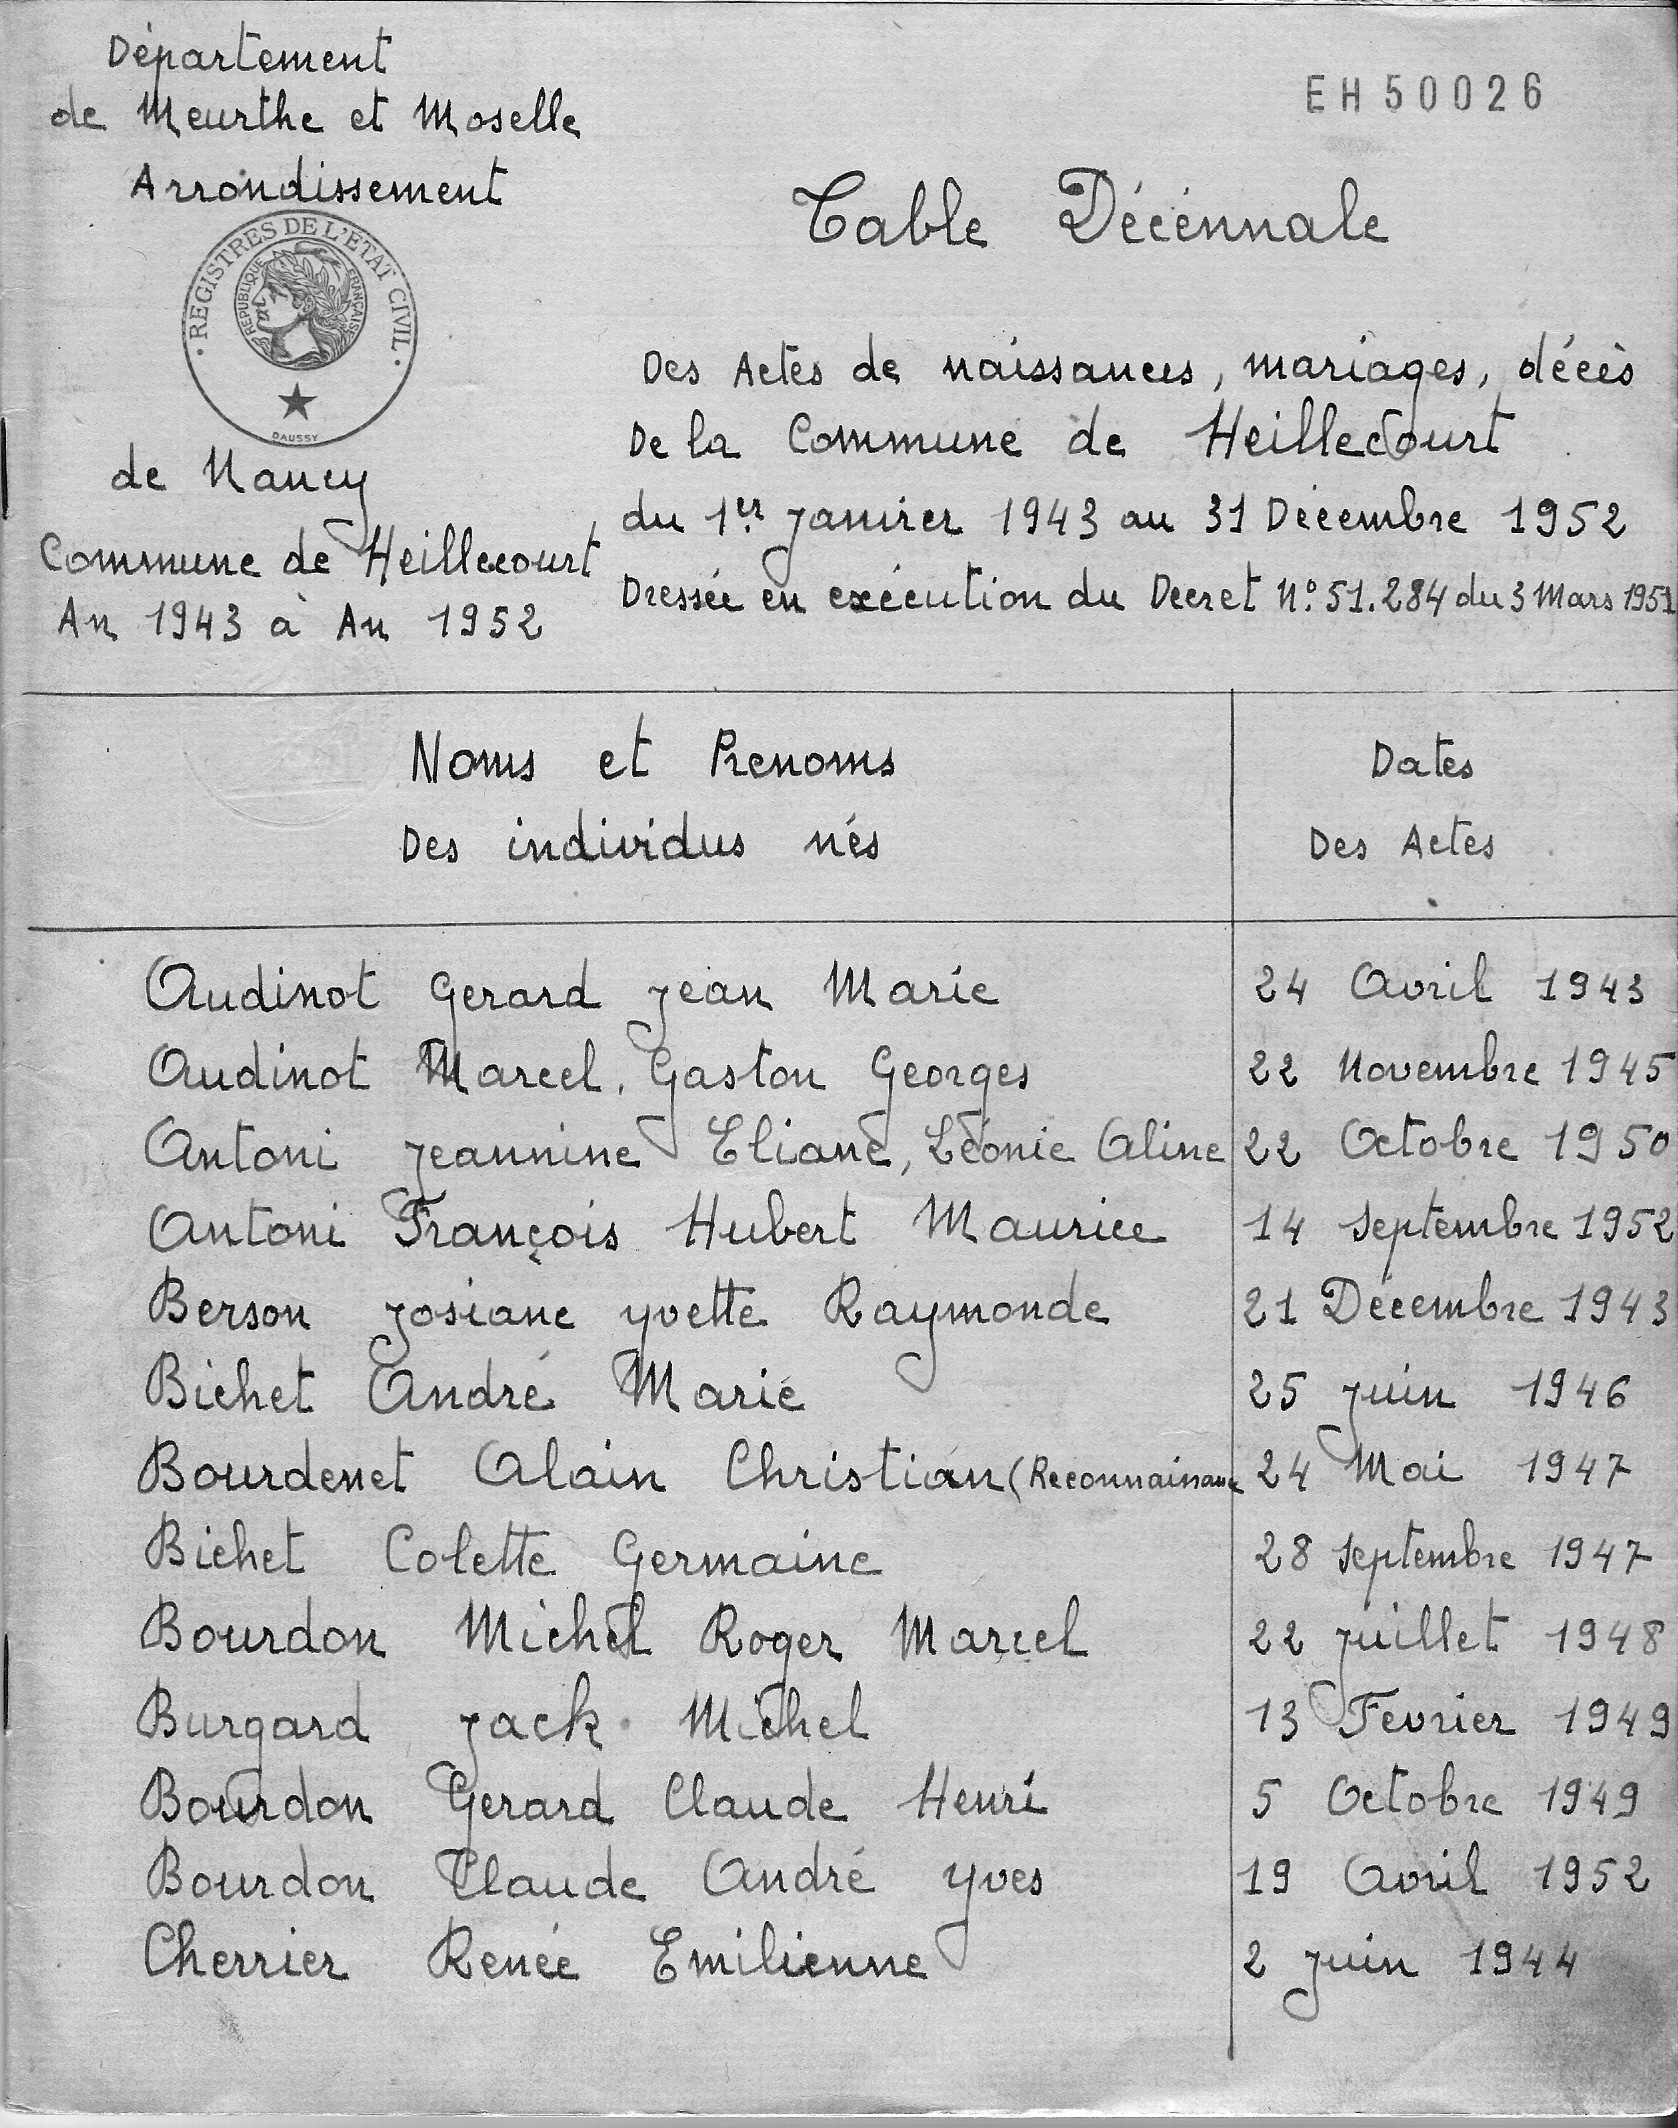 Département
de Meurthe et Moselle
Arrondissement
REGISTRES DE L'ÉTAT CIVIL
RÉPUBLIQUE FRANÇAISE
DAUSSY
de Nancy
Commune de Heillecourt
An 1943 à An 1952
EH50026
Table Décénnale
Des Actes de naissances, mariages, décès
De la Commune de Heillecourt
du 1er janvier 1943 au 31 Décembre 1952
Dressée en exécution du Decret N° 51.284 du 3 Mars 1951
Noms et Prenoms
Des individus nés
Dates
Des Actes
Audinot Gerard jean Marie 24 Avril 1943
Audinot Marcel, Gaston Georges 22 Novembre 1945
Antoni jeannine Eliane, Léonie Aline 22 Octobre 1950
Antoni François Hubert Maurice 14 Septembre 1952
Berson josiane yvette Raymonde 21 Décembre 1943
Bichet André Marie 25 juin 1946
Bourdenet Alain Christian (Reconnaissance 24 Mai 1947
Bichet Colette Germaine 28 Septembre 1947
Bourdon Michel Roger Marcel 22 juillet 1948
Burgard jack Michel 13 Fevrier 1949
Bourdon Gerard Claude Henri 5 Octobre 1949
Bourdon Claude André yves 19 Avril 1952
Cherrier Renée Emilienne 2 juin 1944